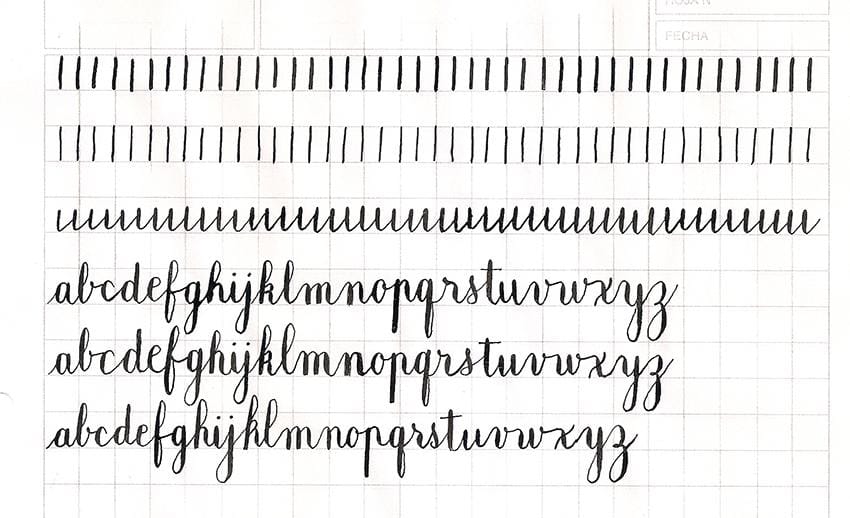 HOJA N°
FECHA
abcdefghijklmnopqrstuvwxyz
abcdefghijklmnopqrstuvwxyz
abcdefghijklmnopqrstuvwxyz